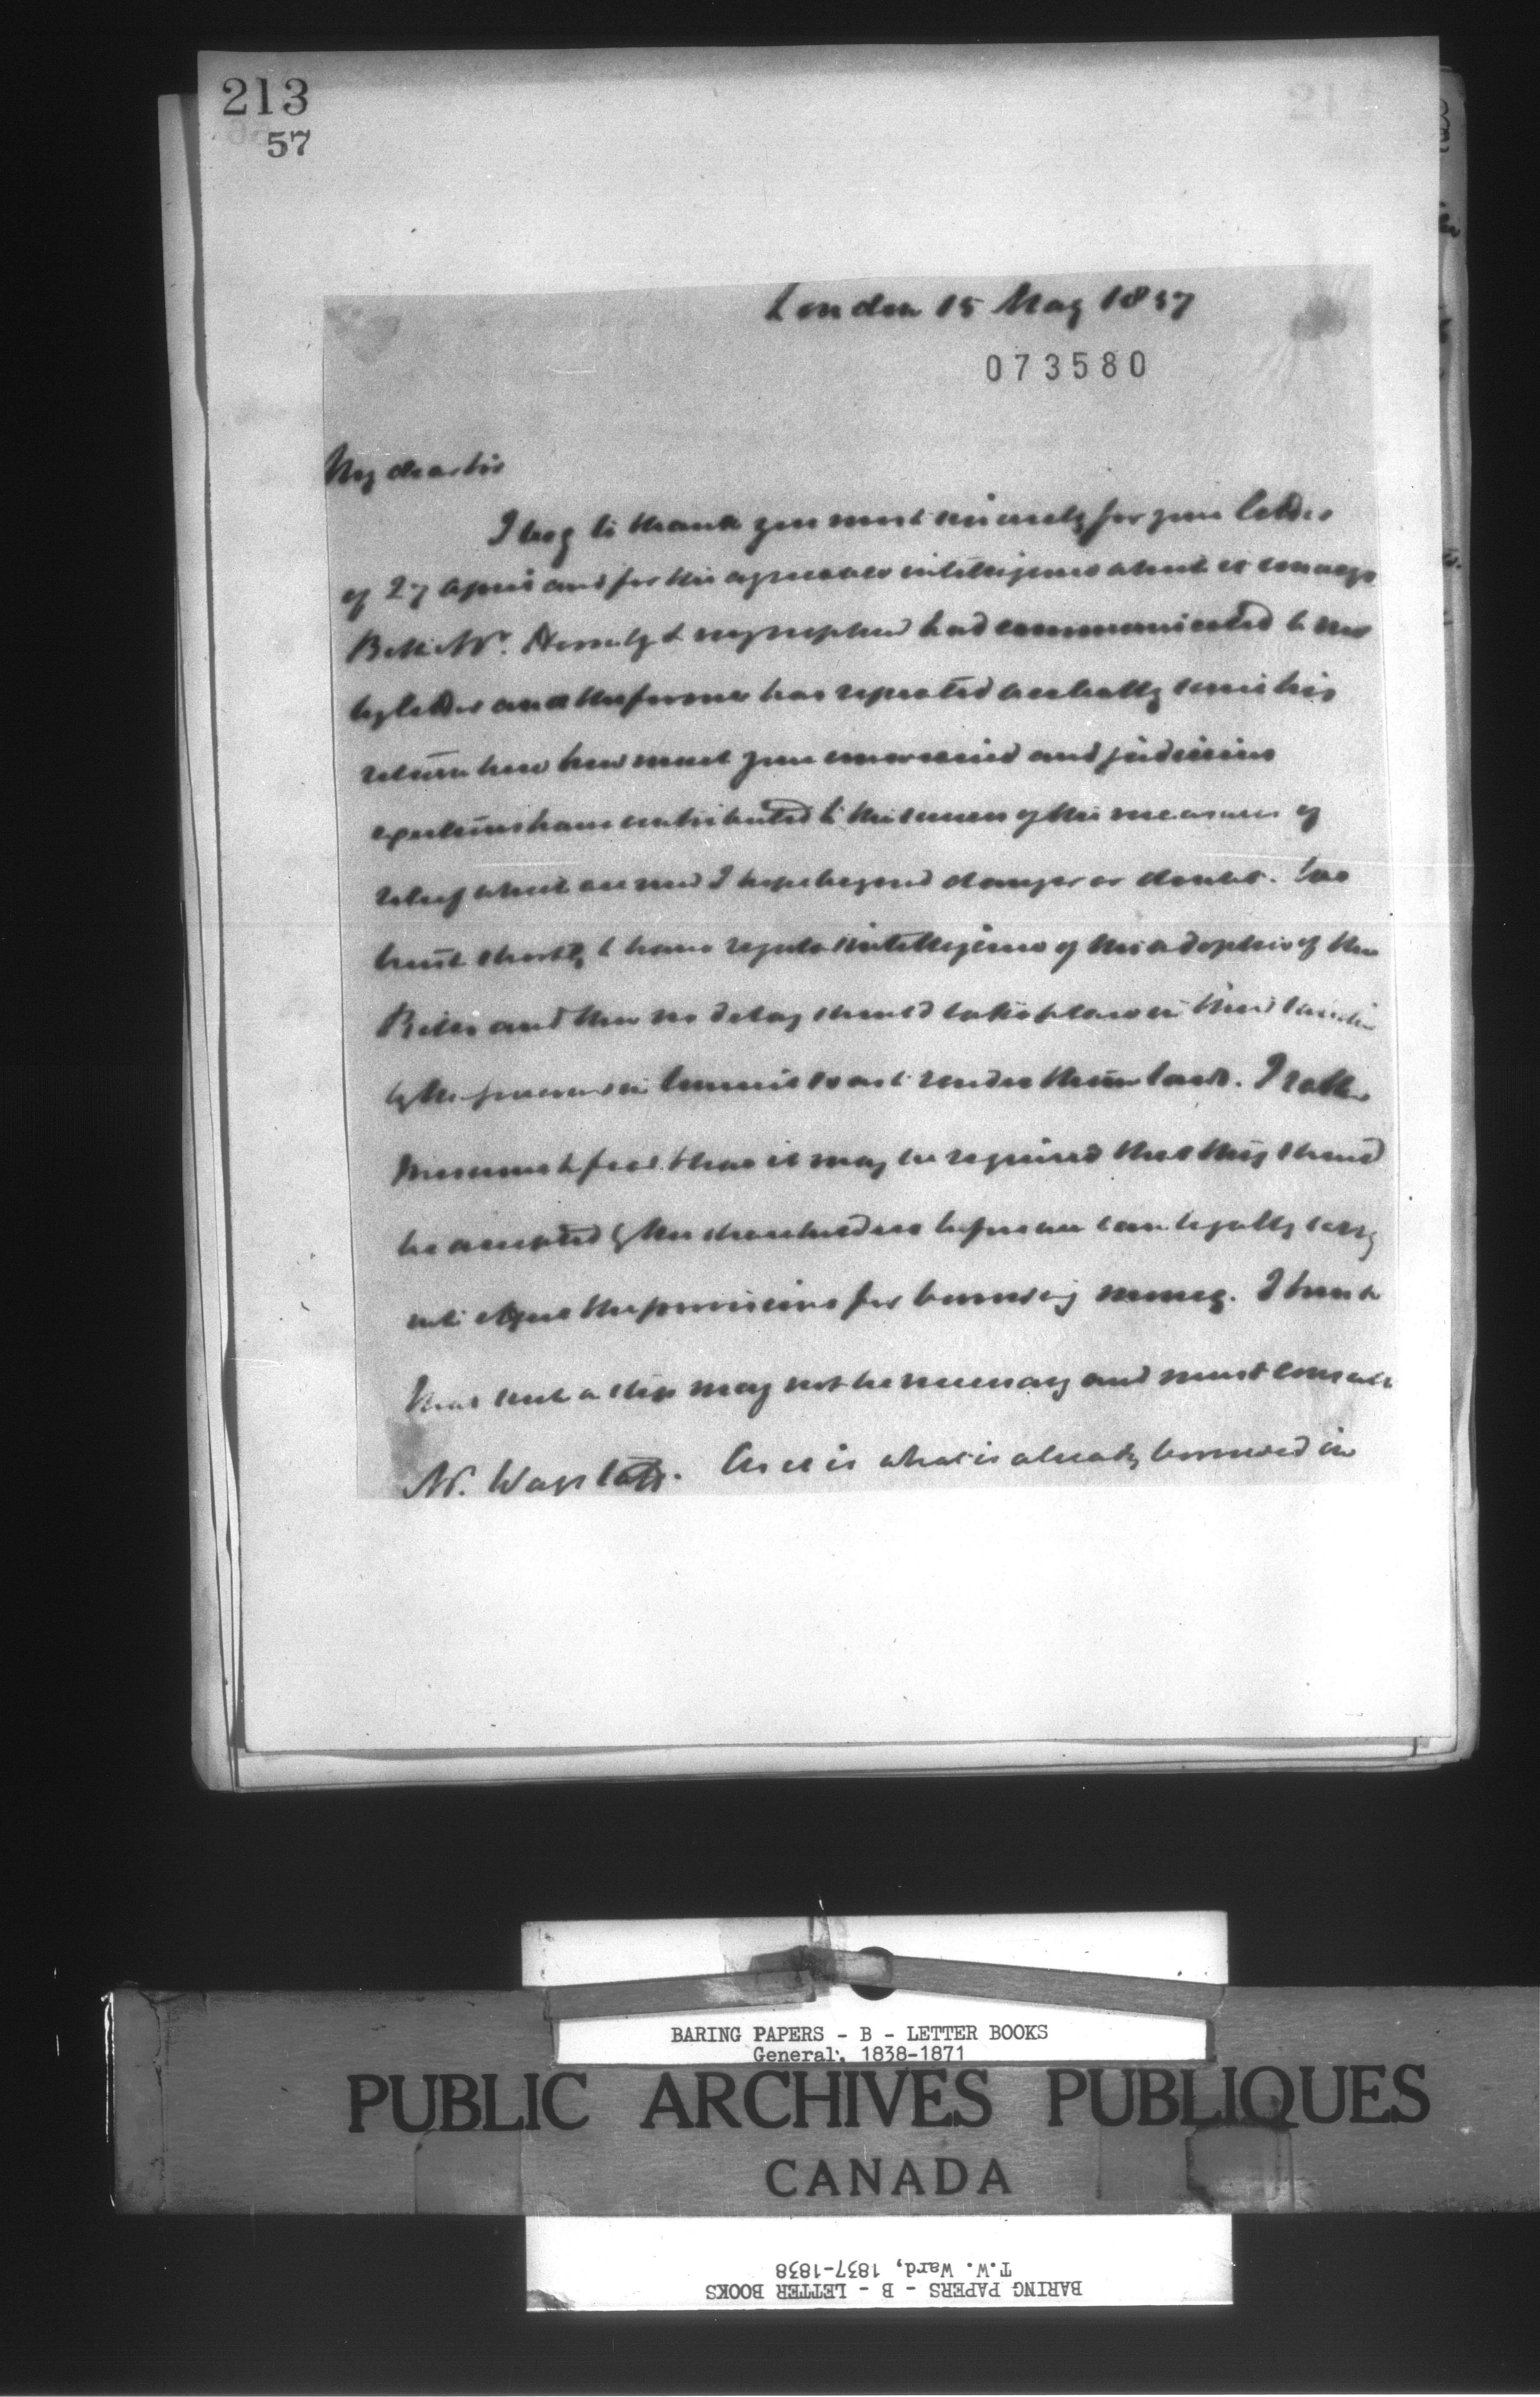 213
57
London 15 May 1857
073580
My dear Sir
I beg to thank you most sincerely for your letter
of 27 April and for the agreeable intelligence which it conveys
Both Mr. & my nephew had communicated to me
by letter and the former has repeated verbally since his
return here how much your unwearied and judicious
exertions have contributed to the success of the measures of
relief which are now I hope beyond danger or doubt. We
trust shortly to have regular intelligence of the adoption of the
Bills and then no delay should take place in their
by the to render them law. I rather
to find that it may be required that they should
be accepted by the shareholders before we can legally carry
into effect the provisions for borrowing money. I trust
that such a step may not be necessary and must consult
Mr. Wagstaff. As it is what is already borrowed in
BARING PAPERS - B - LETTER BOOKS
General, 1838-1871
PUBLIC ARCHIVES PUBLIQUES
CANADA
T.W. Ward, 1837-1838
BARING PAPERS - B - LETTER BOOKS